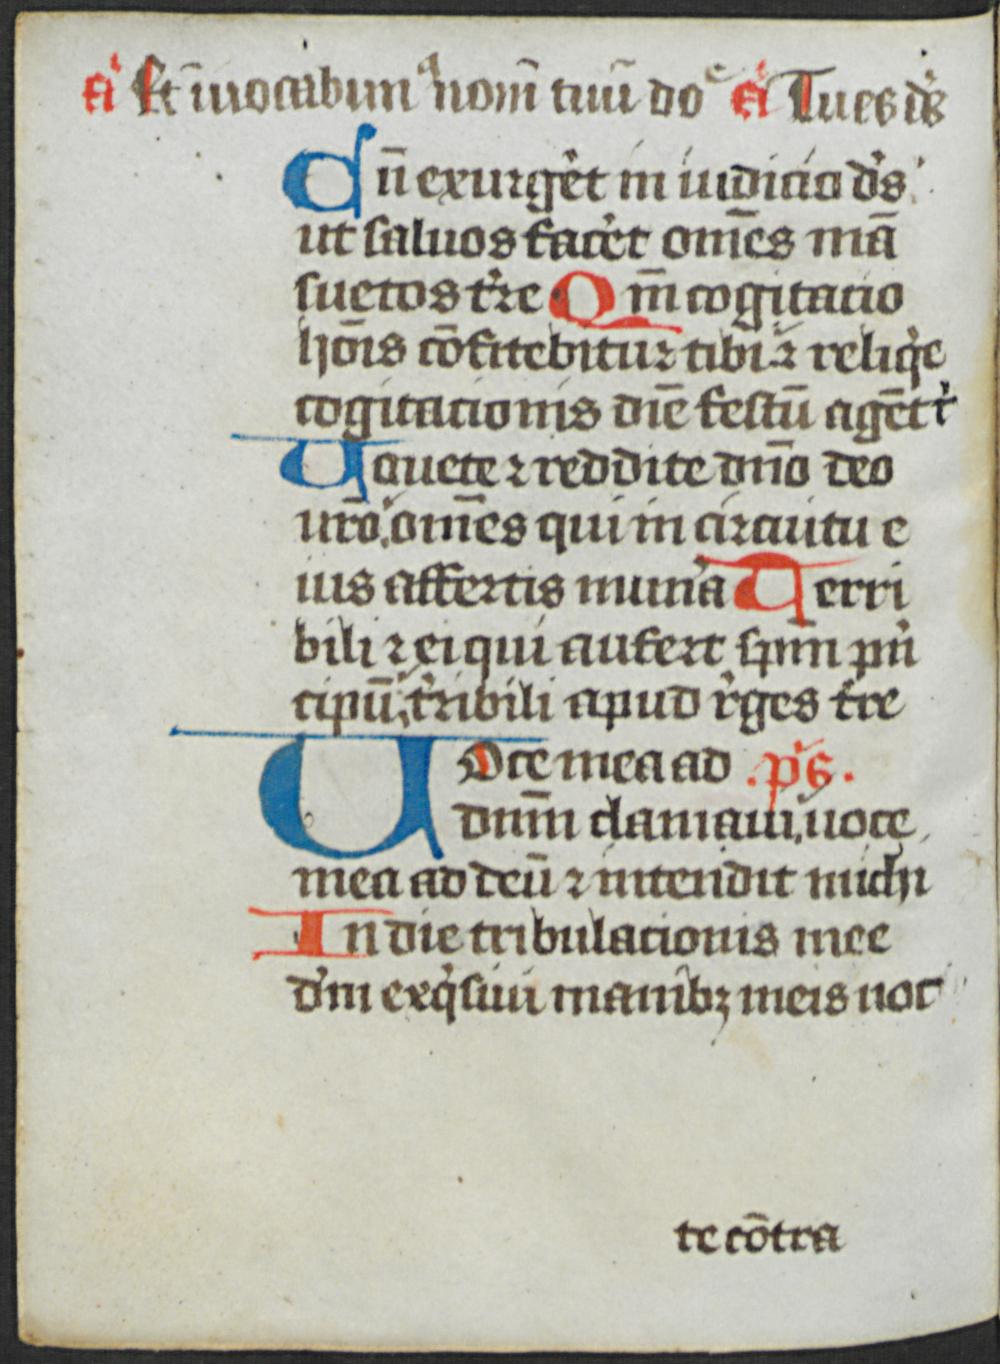 a᷑ Et īuocabim᷒ nom̄ tuū do a᷑ Tu es ds̄
Cū exurgẻt in iudicio dẻs
ut saluos facẻt om̄es mā
suetos tẻre Qm̄ cogitatio
hoīs cōfitebitur tibi ꝛ reliqẻ
cogitacionis diē festū agēt t᷑
Uouete ꝛ reddite dn̄o deo
ur̄o, om̄es qui in circuitu e
ius affertis munẻa Terri
bili ꝛ ei qui aufert spm̄ pn̉
cipū, tẻribili apud rẻges tẻre
Uoce mea ad .ps̉.
dnm̄ clamaui, uoce
mea ad deū ꝛ intendit michi
In die tribulationis mee
dm̉ exq̉siui manib; meis noc
te cōtra